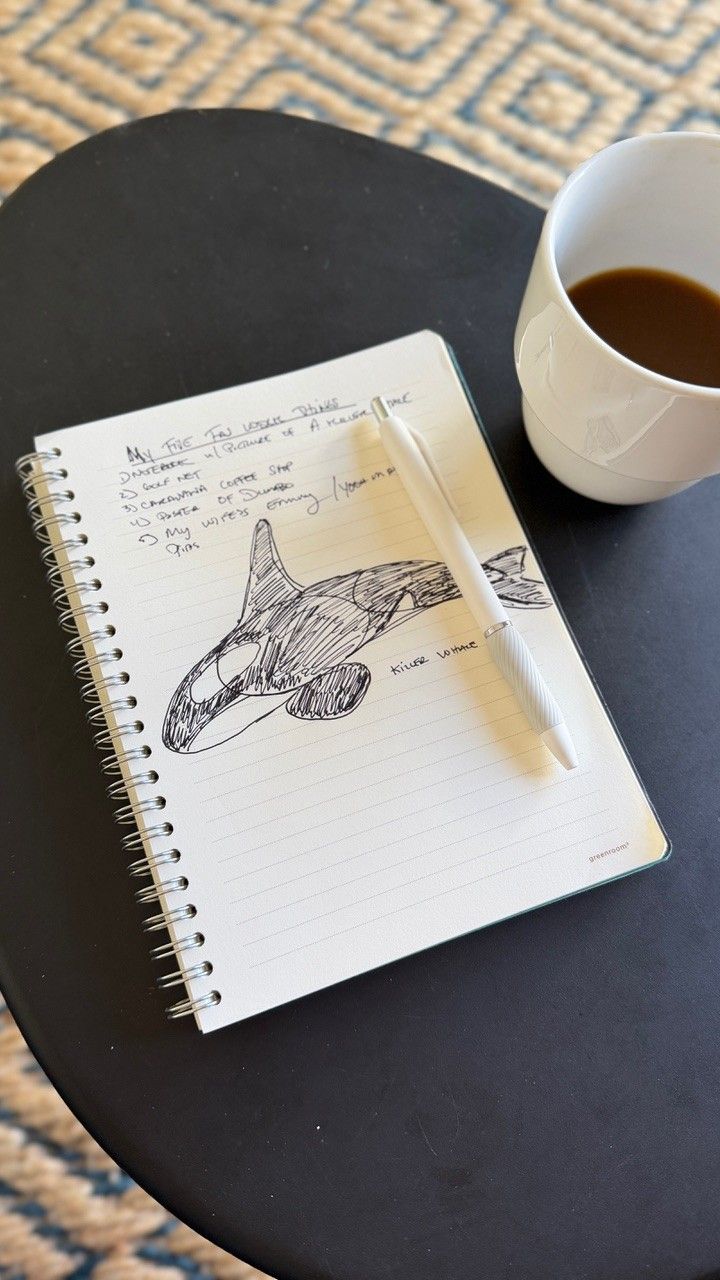 My Five Fav Words Things
1) Notebook w/ Picture of A Killer Whale
2) Golf Net
3) Caravania Coffee Stop
4) Poster of Dumbo
5) My wife's
Killer Whale
greenroom